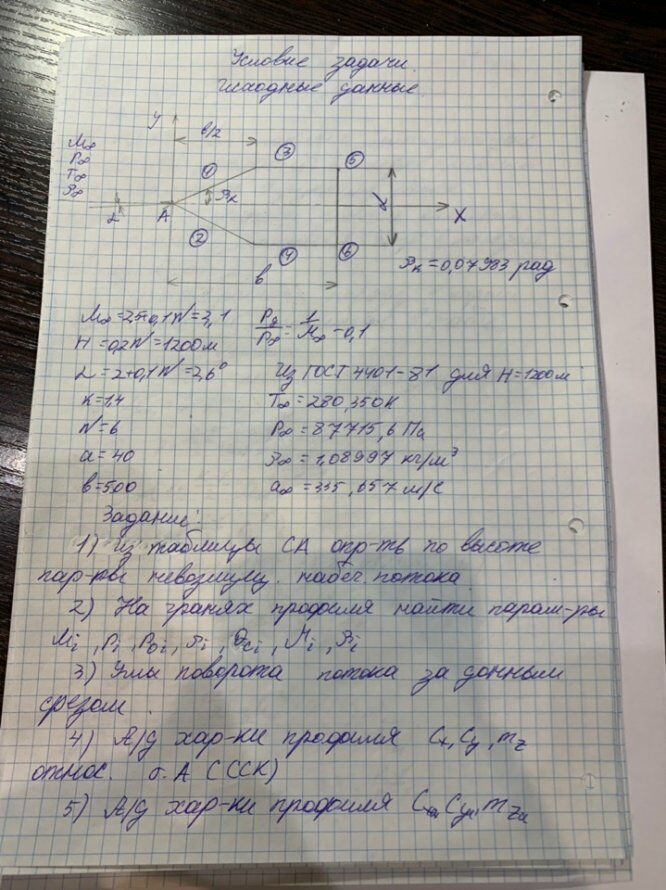 Условие задачи.
Исходные данные
y
в/2
M∞
P∞
T∞
ρ∞
α
A
1
2
3
4
5
6
X
в
βк = 0,07983 рад
M∞ = 2,5+0,1N = 3,1
Pд/P∞ = 1/M∞ - 0,1
H = 0,2N = 1200м
α = 2+0,1N = 2,6°
Из ГОСТ 4401-81 для H = 1200м
K = 1,4
T∞ = 280,350К
N = 6
P∞ = 87715,6 Па
a = 40
ρ∞ = 1,08997 кг/м³
в = 500
a∞ = 335,657 м/с
Задание:
1) Из таблицы СА опр-ть по высоте
пар-ры невозмущ. набег. потока
2) На гранях профиля найти парам-ры
Mi, Pi, P0i,
3) Углы поворота потока за донным
срезом.
4) А/д хар-ки профиля Cx, Cy, mz
относ. т. А (ССК)
5) А/д хар-ки профиля Cxa, Cya, mza